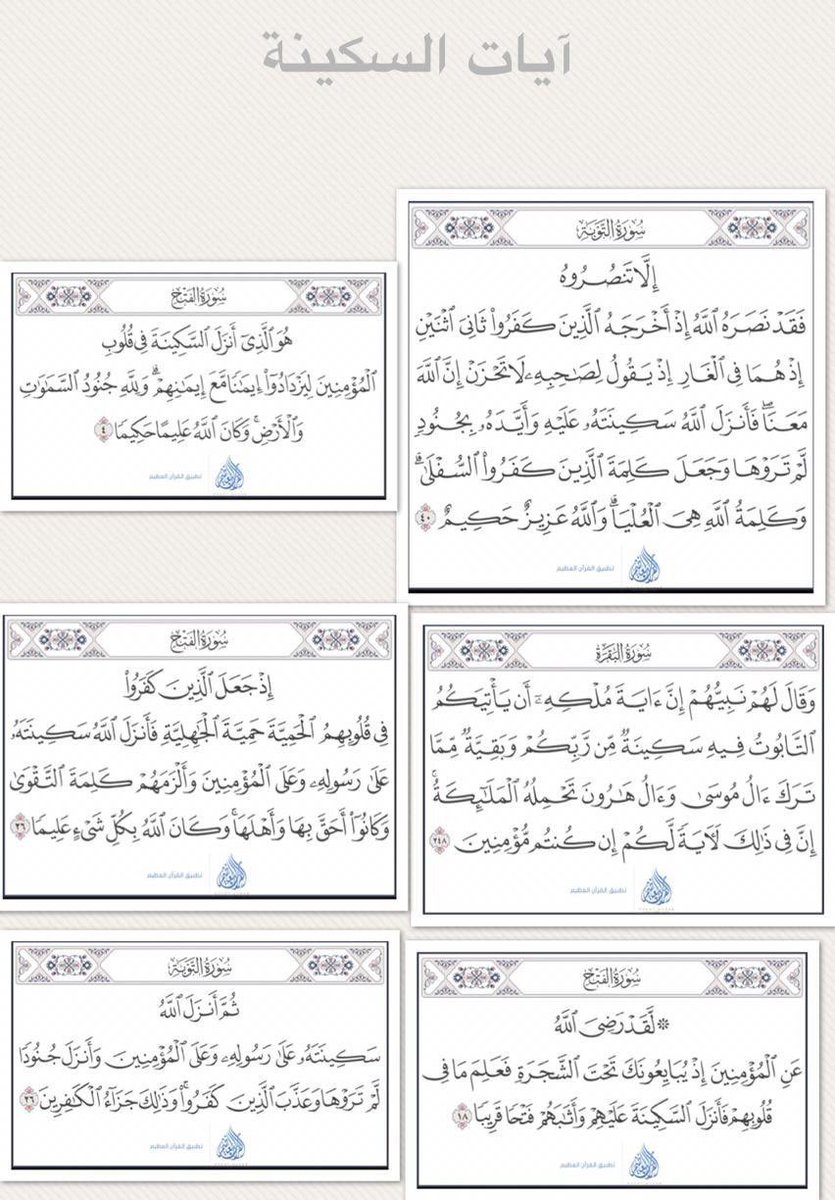 آيات السكينة
سُورَةُ التَّوۡبَةِ
إِلَّا تَنصُرُوهُ
فَقَدۡ نَصَرَهُ ٱللَّهُ إِذۡ أَخۡرَجَهُ ٱلَّذِينَ كَفَرُواْ ثَانِيَ ٱثۡنَيۡنِ
إِذۡ هُمَا فِي ٱلۡغَارِ إِذۡ يَقُولُ لِصَٰحِبِهِۦ لَا تَحۡزَنۡ إِنَّ ٱللَّهَ
مَعَنَاۖ فَأَنزَلَ ٱللَّهُ سَكِينَتَهُۥ عَلَيۡهِ وَأَيَّدَهُۥ بِجُنُودٖ
لَّمۡ تَرَوۡهَا وَجَعَلَ كَلِمَةَ ٱلَّذِينَ كَفَرُواْ ٱلسُّفۡلَىٰۗ
وَكَلِمَةُ ٱللَّهِ هِيَ ٱلۡعُلۡيَاۗ وَٱللَّهُ عَزِيزٌ حَكِيمٌ ٤٠
تطبيق القرآن العظيم
سُورَةُ الفَتۡحِ
هُوَ ٱلَّذِيٓ أَنزَلَ ٱلسَّكِينَةَ فِي قُلُوبِ
ٱلۡمُؤۡمِنِينَ لِيَزۡدَادُوٓاْ إِيمَٰنٗا مَّعَ إِيمَٰنِهِمۡۗ وَلِلَّهِ جُنُودُ ٱلسَّمَٰوَٰتِ
وَٱلۡأَرۡضِۚ وَكَانَ ٱللَّهُ عَلِيمًا حَكِيمٗا ٤
تطبيق القرآن العظيم
سُورَةُ البَقَرَةِ
وَقَالَ لَهُمۡ نَبِيُّهُمۡ إِنَّ ءَايَةَ مُلۡكِهِۦٓ أَن يَأۡتِيَكُمُ
ٱلتَّابُوتُ فِيهِ سَكِينَةٞ مِّن رَّبِّكُمۡ وَبَقِيَّةٞ مِّمَّا
تَرَكَ ءَالُ مُوسَىٰ وَءَالُ هَٰرُونَ تَحۡمِلُهُ ٱلۡمَلَٰٓئِكَةُۚ
إِنَّ فِي ذَٰلِكَ لَأٓيَةٗ لَّكُمۡ إِن كُنتُم مُّؤۡمِنِينَ ٢٤٨
تطبيق القرآن العظيم
سُورَةُ الفَتۡحِ
إِذۡ جَعَلَ ٱلَّذِينَ كَفَرُواْ
فِي قُلُوبِهِمُ ٱلۡحَمِيَّةَ حَمِيَّةَ ٱلۡجَٰهِلِيَّةِ فَأَنزَلَ ٱللَّهُ سَكِينَتَهُۥ
عَلَىٰ رَسُولِهِۦ وَعَلَى ٱلۡمُؤۡمِنِينَ وَأَلۡزَمَهُمۡ كَلِمَةَ ٱلتَّقۡوَىٰ
وَكَانُوٓاْ أَحَقَّ بِهَا وَأَهۡلَهَاۚ وَكَانَ ٱللَّهُ بِكُلِّ شَيۡءٍ عَلِيمٗا ٢٦
تطبيق القرآن العظيم
سُورَةُ الفَتۡحِ
۞ لَّقَدۡ رَضِيَ ٱللَّهُ
عَنِ ٱلۡمُؤۡمِنِينَ إِذۡ يُبَايِعُونَكَ تَحۡتَ ٱلشَّجَرَةِ فَعَلِمَ مَا فِي
قُلُوبِهِمۡ فَأَنزَلَ ٱلسَّكِينَةَ عَلَيۡهِمۡ وَأَثَٰبَهُمۡ فَتۡحٗا قَرِيبٗا ١٨
تطبيق القرآن العظيم
سُورَةُ التَّوۡبَةِ
ثُمَّ أَنزَلَ ٱللَّهُ
سَكِينَتَهُۥ عَلَىٰ رَسُولِهِۦ وَعَلَى ٱلۡمُؤۡمِنِينَ وَأَنزَلَ جُنُودٗا
لَّمۡ تَرَوۡهَا وَعَذَّبَ ٱلَّذِينَ كَفَرُواْۚ وَذَٰلِكَ جَزَآءُ ٱلۡكَٰفِرِينَ ٢٦
تطبيق القرآن العظيم